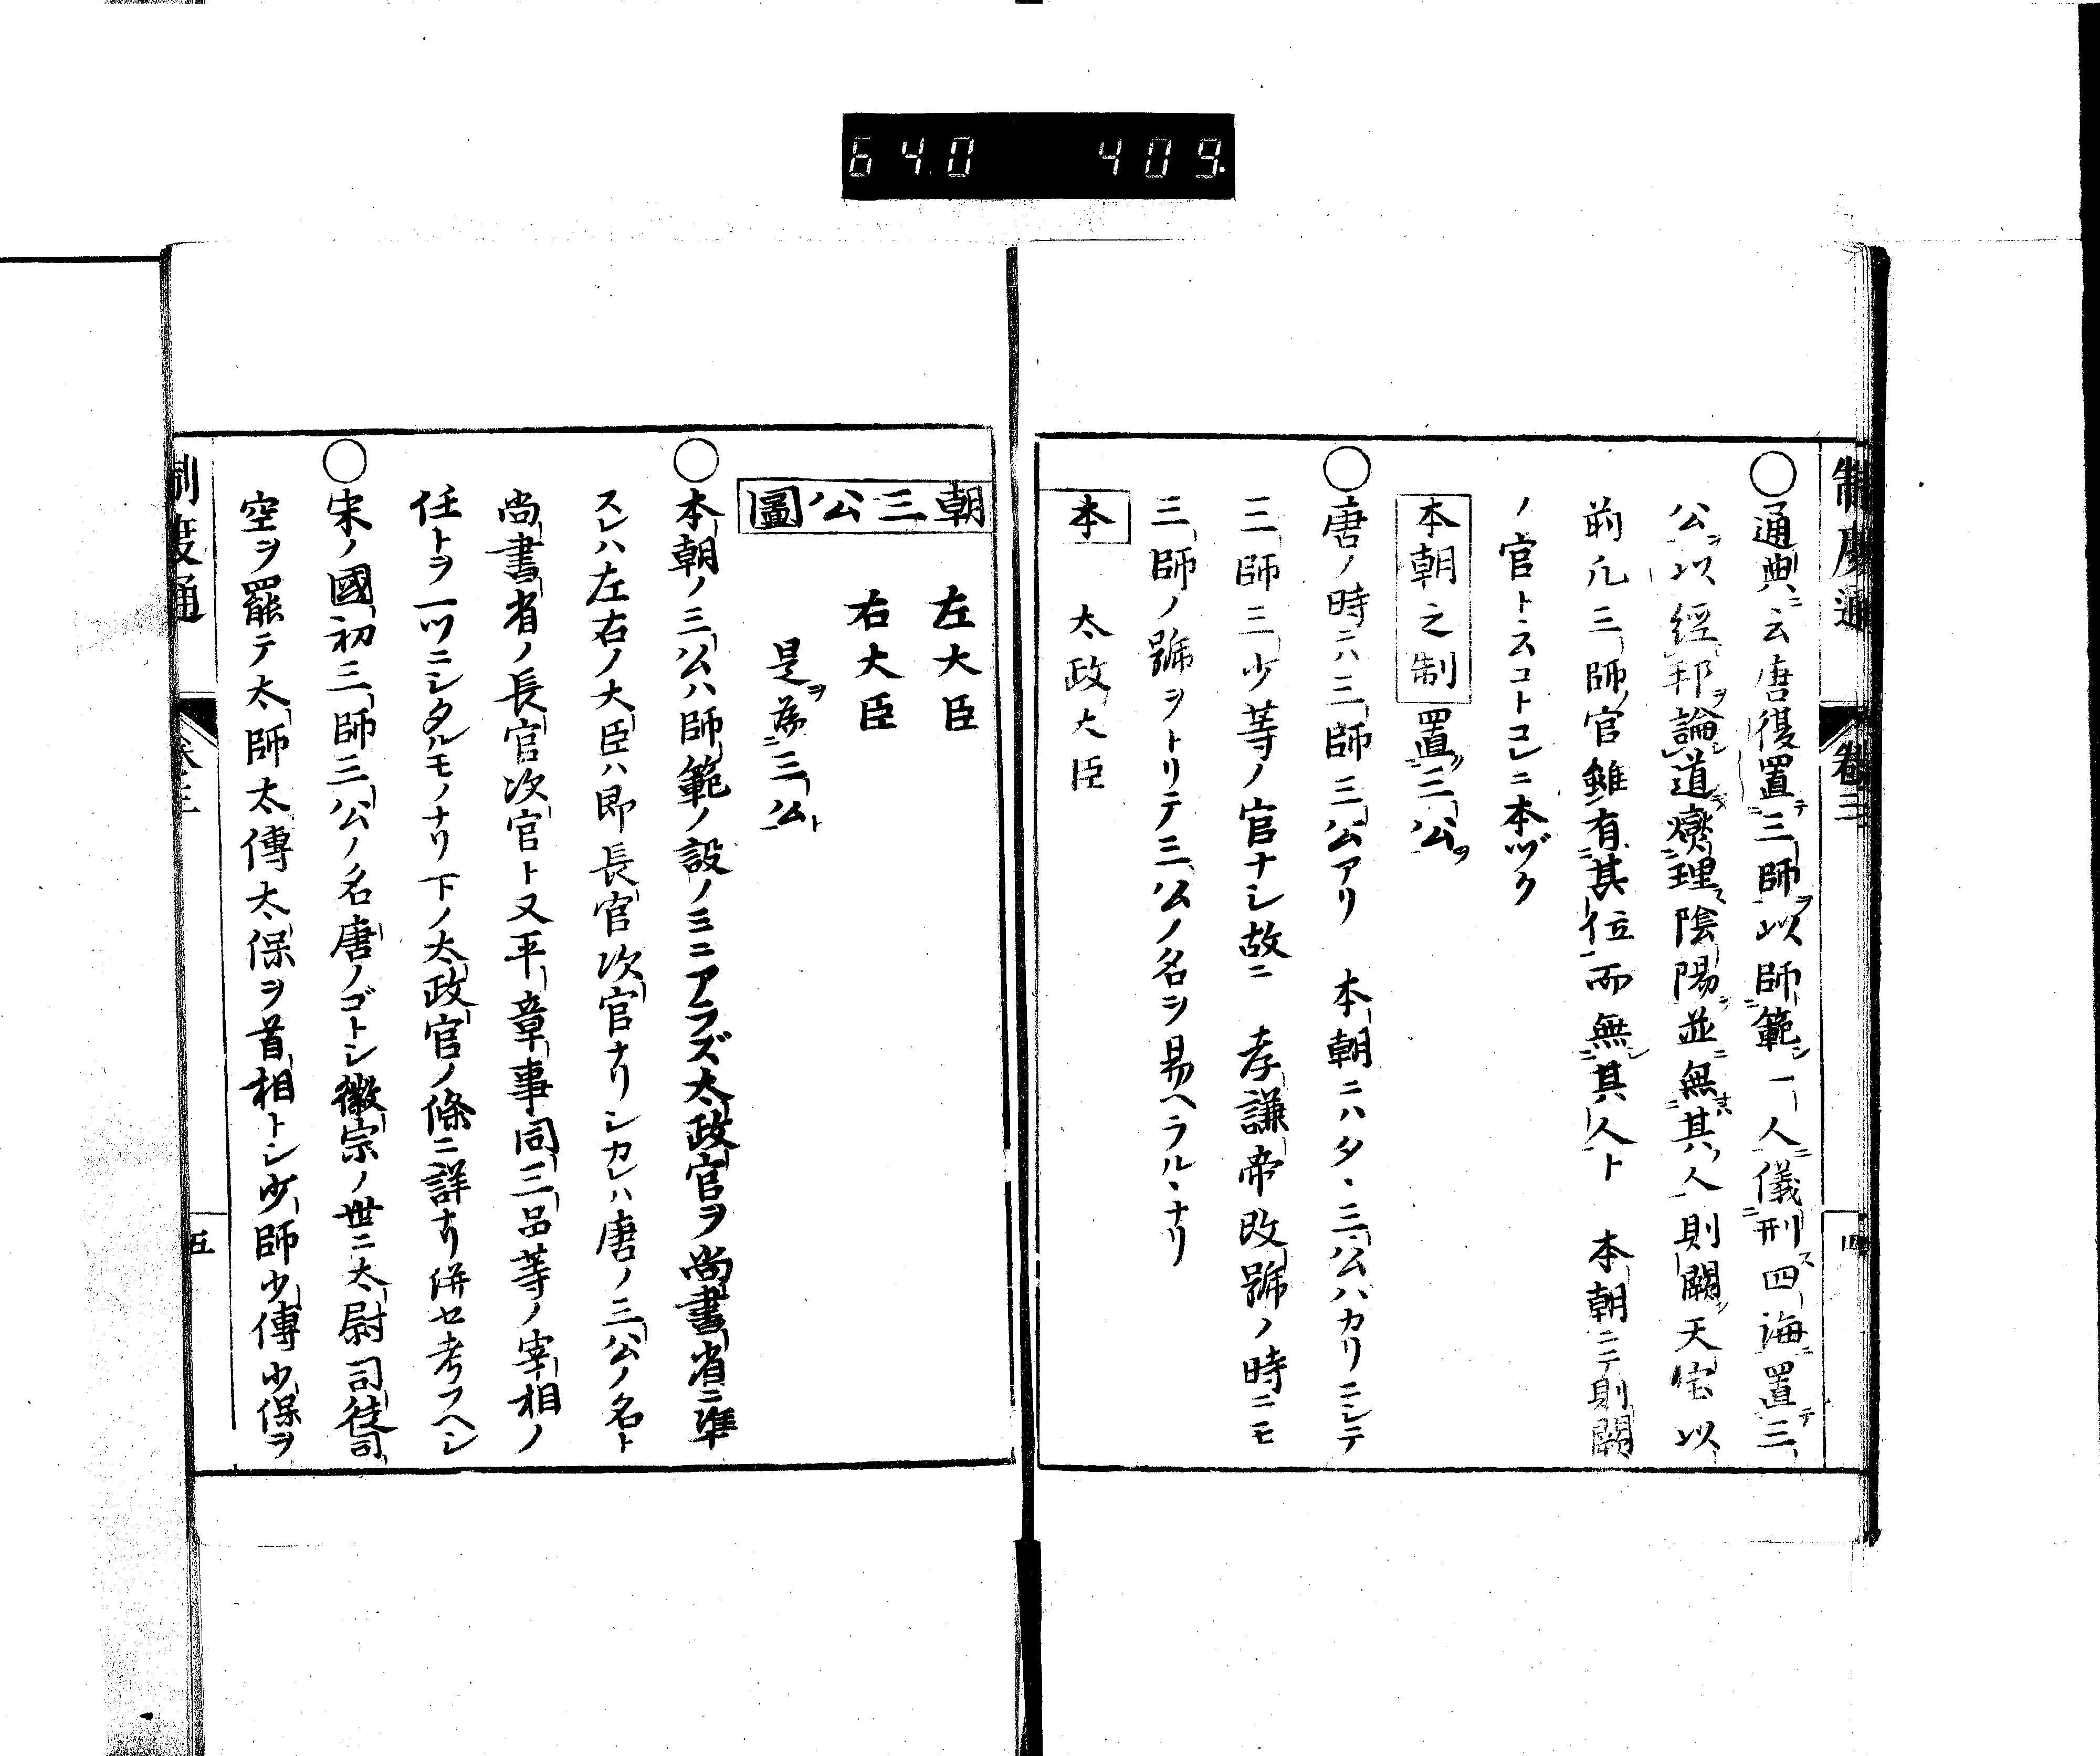 640 409.
制度通 卷三 四
○通典ニ云唐復置テ三師ヲ以師範シ一人ニ儀刑ス四海ニ置テ三
公ヲ以經邦ヲ論シ道ヲ燮理ス陰陽ヲ並ニ無其人則闕ク天宝以
前凡三師ノ官雖有其位而無シ其人ト 本朝ニテ則闕
ノ官トスコトコレニ本ヅク
本朝之制 置三公ヲ
○唐ノ時ニハ三師三公アリ 本朝ニハタヽ三公ハカリニシテ
三師三少等ノ官ナシ故ニ 孝謙帝改號ノ時ニモ
三師ノ號ヲトリテ三公ノ名ヲ易ヘラルヽナリ
本 太政大臣
朝三公圖 左大臣
右大臣
是ヲ為三公ト
○本朝ノ三公ハ師範ノ設ノミニアラズ太政官ヲ尚書省ニ準
スレハ左右ノ大臣ハ即長官次官ナリシカレハ唐ノ三公ノ名ト
尚書省ノ長官次官ト又平章事同三品等ノ宰相ノ
任トヲ一ツニシタルモノナリ下ノ太政官ノ條ニ詳ナリ併セ考フヘシ
○宋ノ國初三師三公ノ名唐ノゴトシ徽宗ノ世ニ太尉司徒司
空ヲ罷テ太師太傅太保ヲ首相トシ少師少傅少保ヲ
制度通 卷三 五